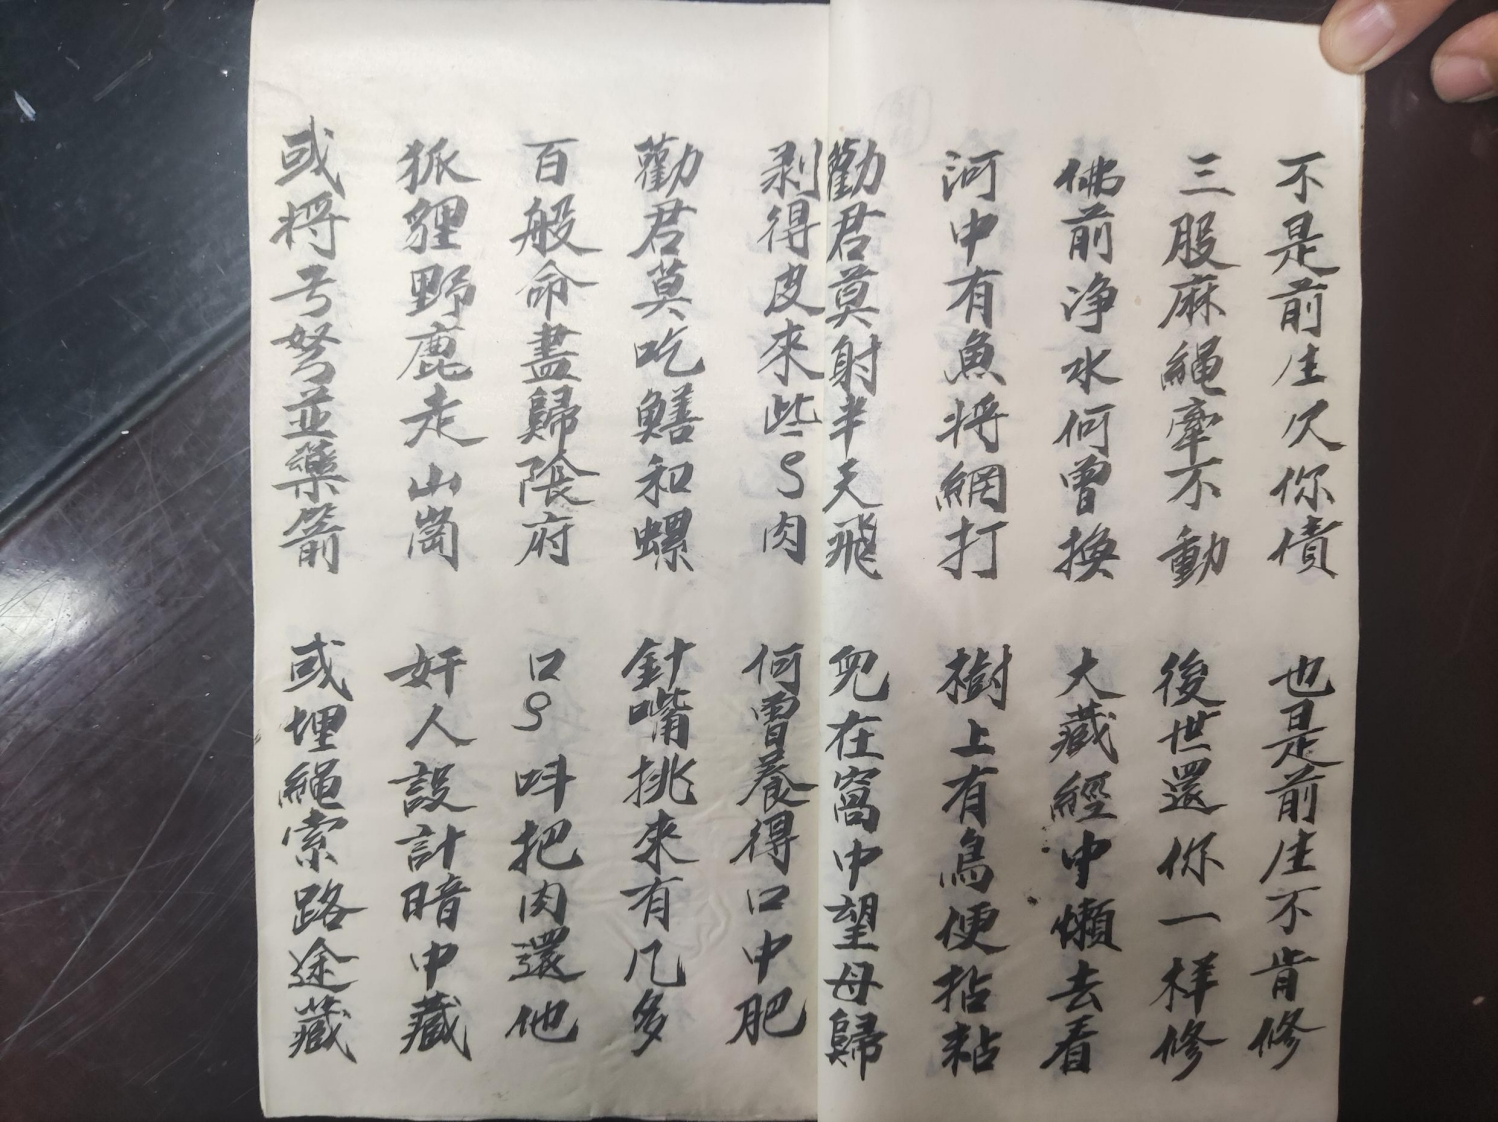 不是前生欠你債　也是前生不肯修
三股麻繩牽不動　後世還你一样修
佛前净水何曾換　大藏經中懶去看
河中有魚将網打　樹上有鳥便拈粘
勸君莫射半天飛　兒在窩中望母歸
剥得皮來些々肉　何曾養得口中肥
勸君莫吃鱔和螺　針嘴挑來有几多
百般命盡歸陰府　口々呌把肉還他
狐貍野鹿走山崗　奸人設計暗中藏
或将弓弩並藥箭　或埋繩索路途藏